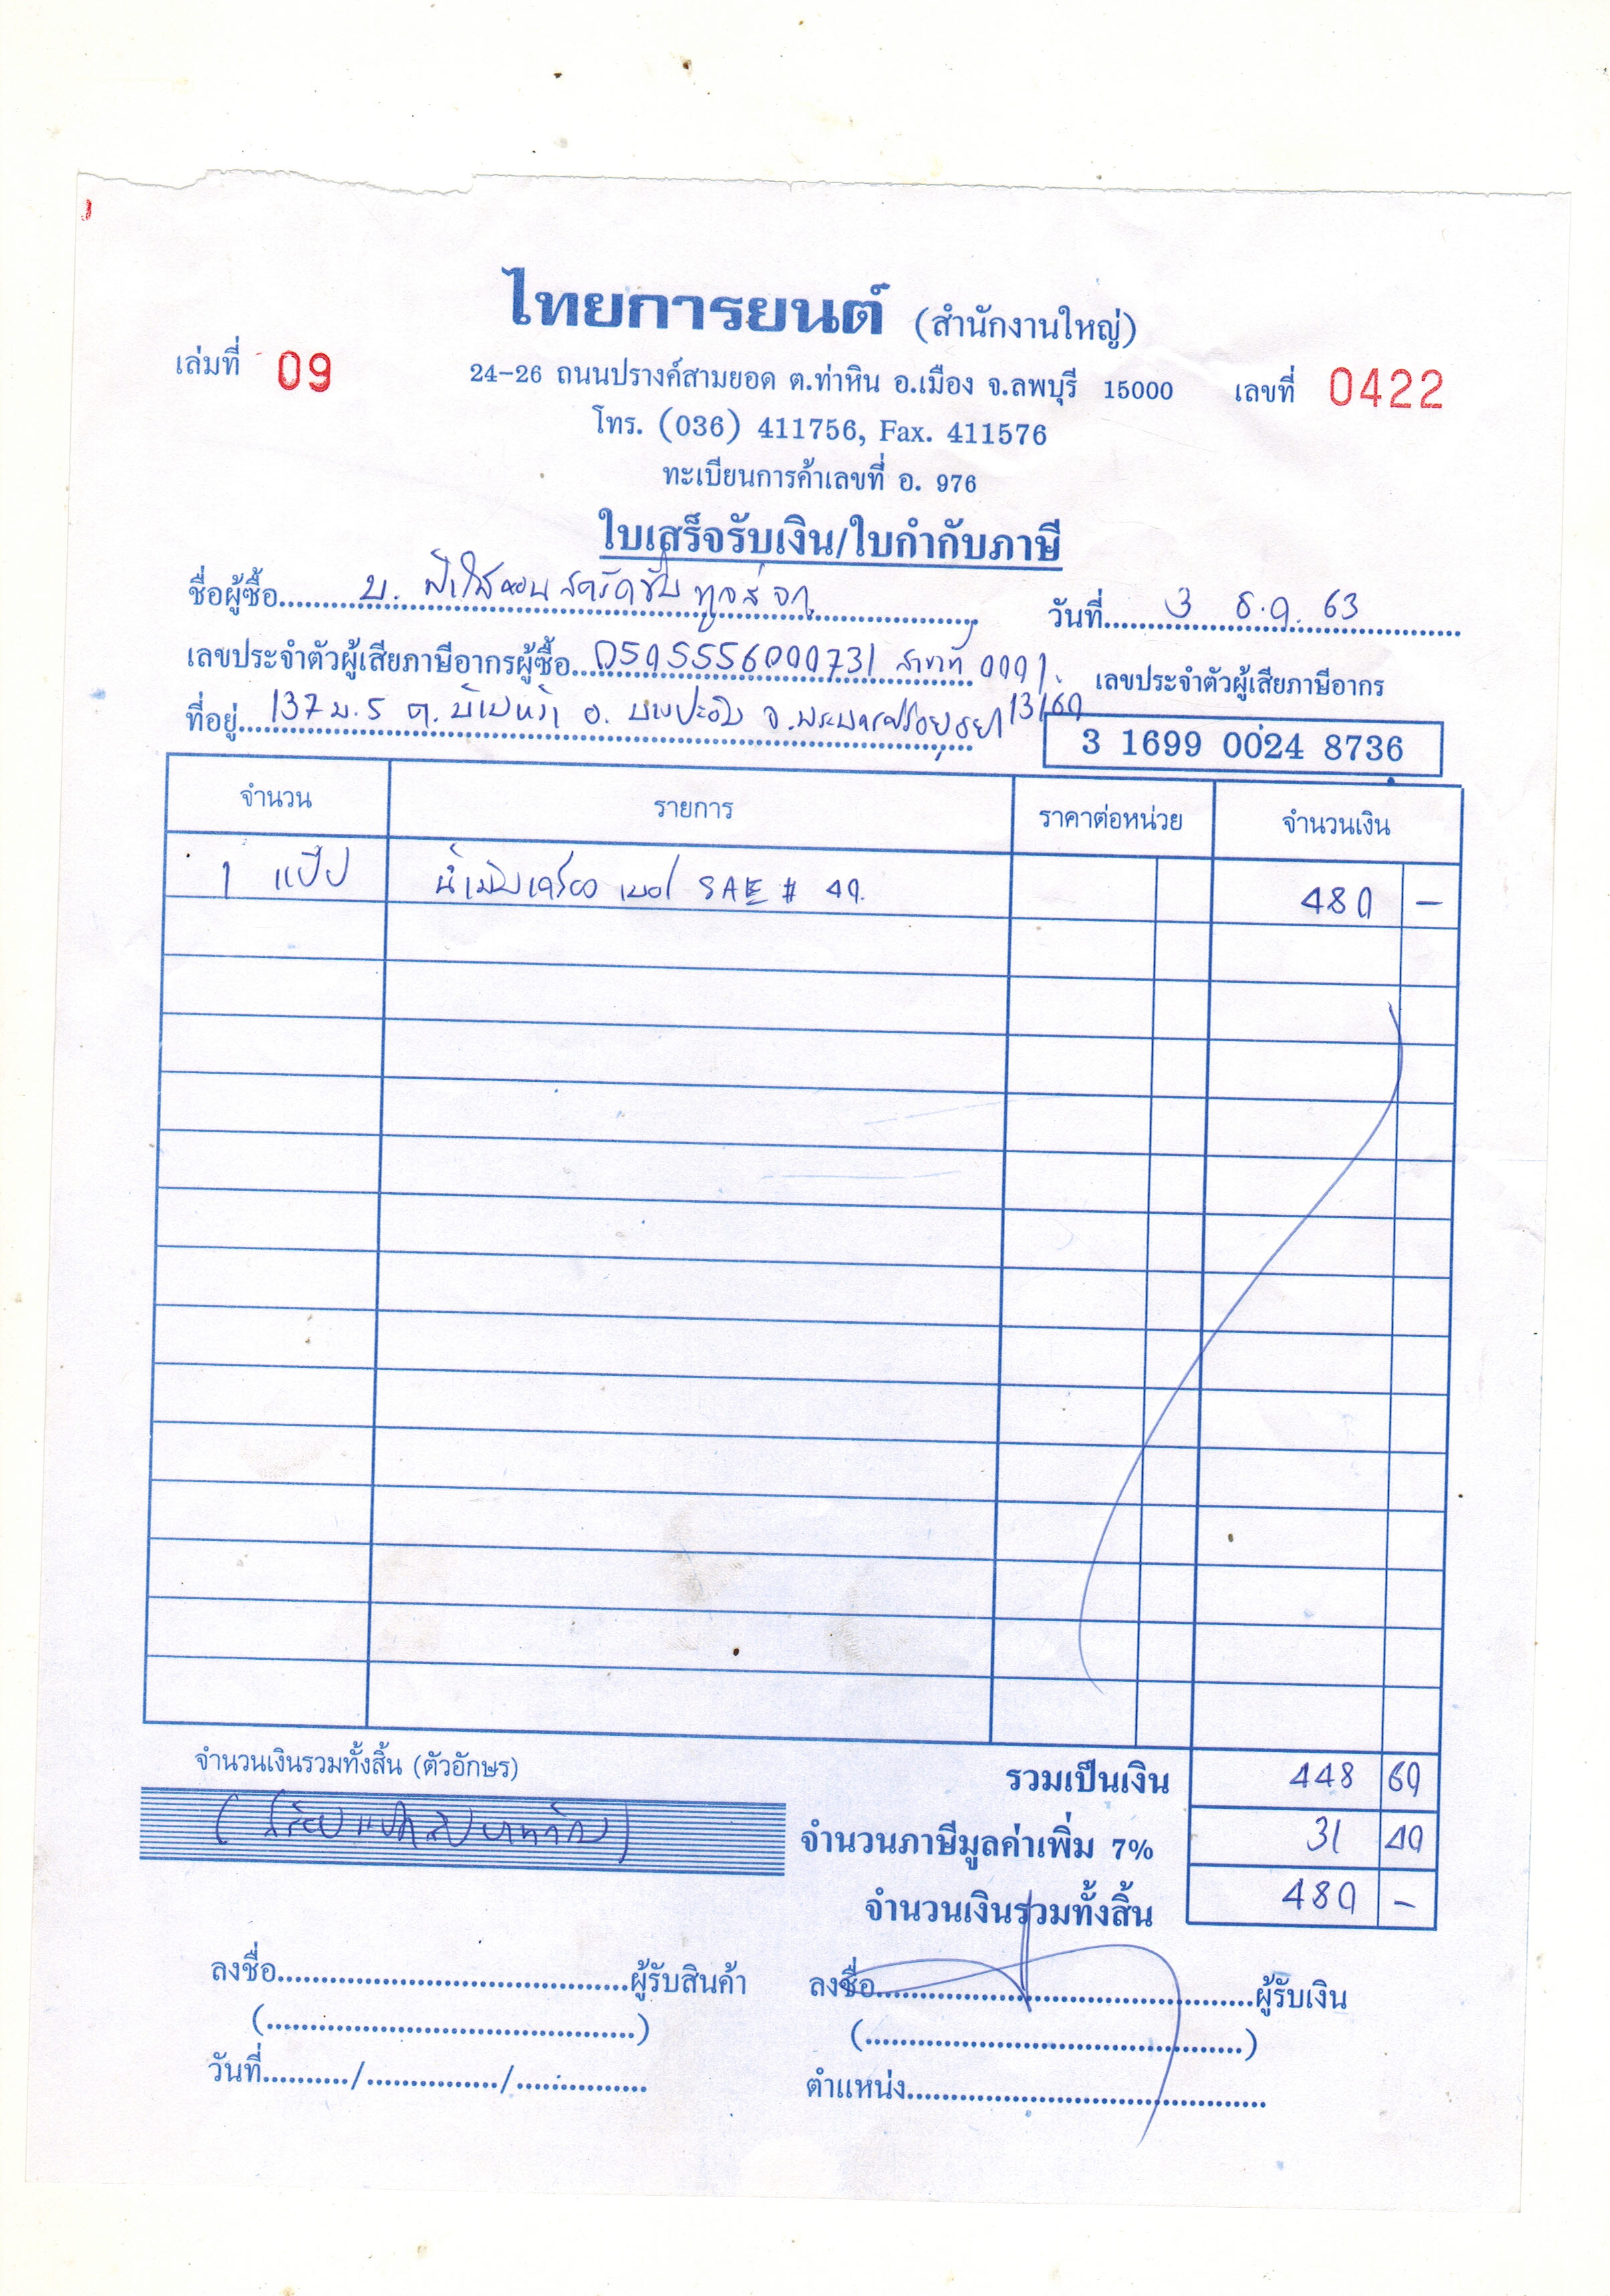 ไทยการยนต์ (สำนักงานใหญ่)
เล่มที่ 09
24-26 ถนนปรางค์สามยอด ต.ท่าหิน อ.เมือง จ.ลพบุรี 15000
เลขที่ 0422
โทร. (036) 411756, Fax. 411576
ทะเบียนการค้าเลขที่ อ. 976
ใบเสร็จรับเงิน/ใบกำกับภาษี
ชื่อผู้ซื้อ บ. จก.
วันที่ 3 ธ.ค. 63
เลขประจำตัวผู้เสียภาษีอากรผู้ซื้อ 0505556000731 สาขาที่ 0001
เลขประจำตัวผู้เสียภาษีอากร
ที่อยู่ 137 ม.5 ต. อ. บางปะอิน จ.พระนครศรีอยุธยา 13160
3 1699 0024 8736
จำนวน รายการ ราคาต่อหน่วย จำนวนเงิน
1 แป๊ป น้ำมันเครื่อง เบอร์ SAE # 40 480 -
จำนวนเงินรวมทั้งสิ้น (ตัวอักษร)
รวมเป็นเงิน 448 60
(สี่ร้อยแปดสิบบาทถ้วน)
จำนวนภาษีมูลค่าเพิ่ม 7% 31 40
จำนวนเงินรวมทั้งสิ้น 480 -
ลงชื่อ ผู้รับสินค้า
ลงชื่อ ผู้รับเงิน
วันที่ / /
ตำแหน่ง